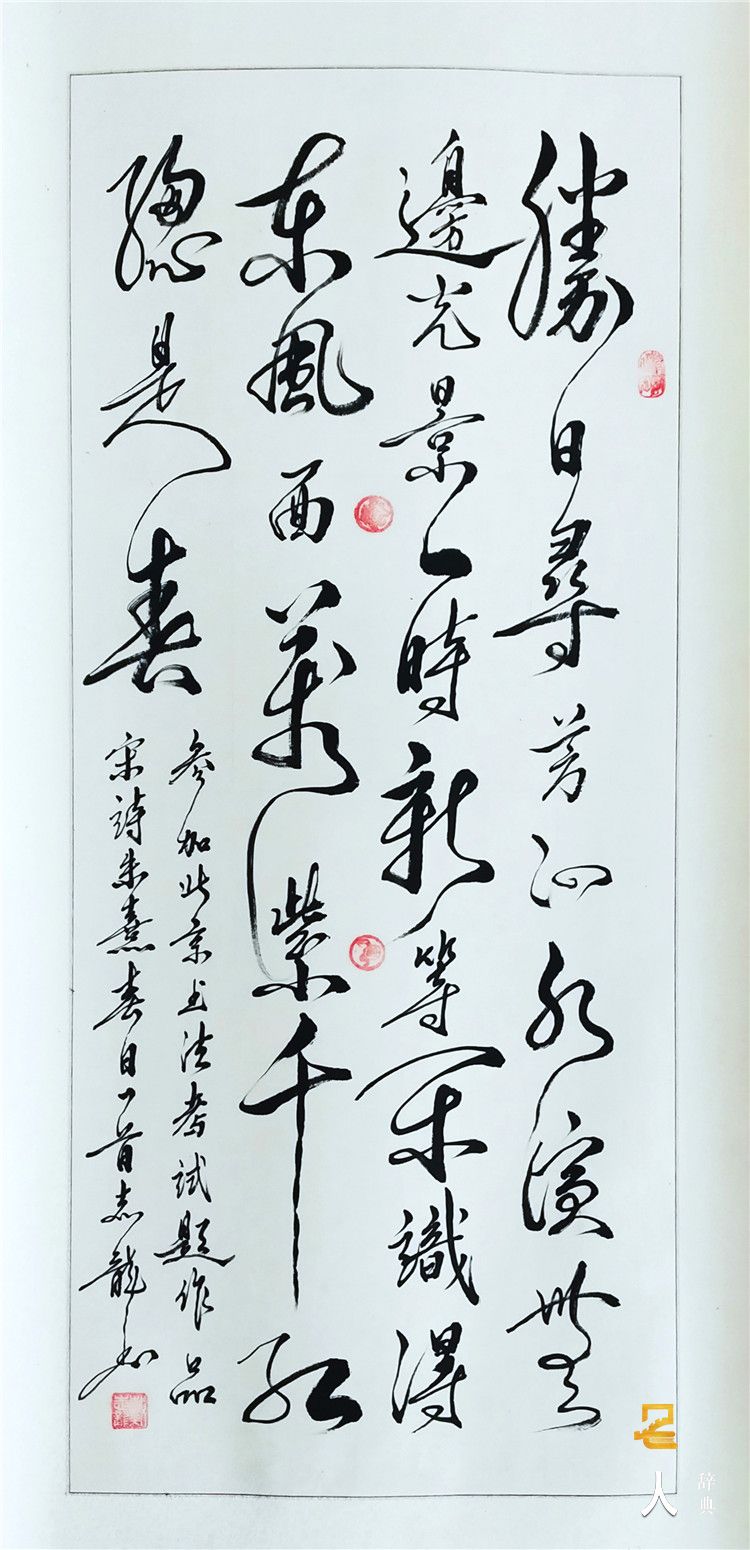 勝日尋芳泗水濱無
邊光景一時新等閑識得
東風面萬紫千紅
總是春
參加北京書法考試題作品
宋詩朱熹春日一首志龍書
名人
辞典